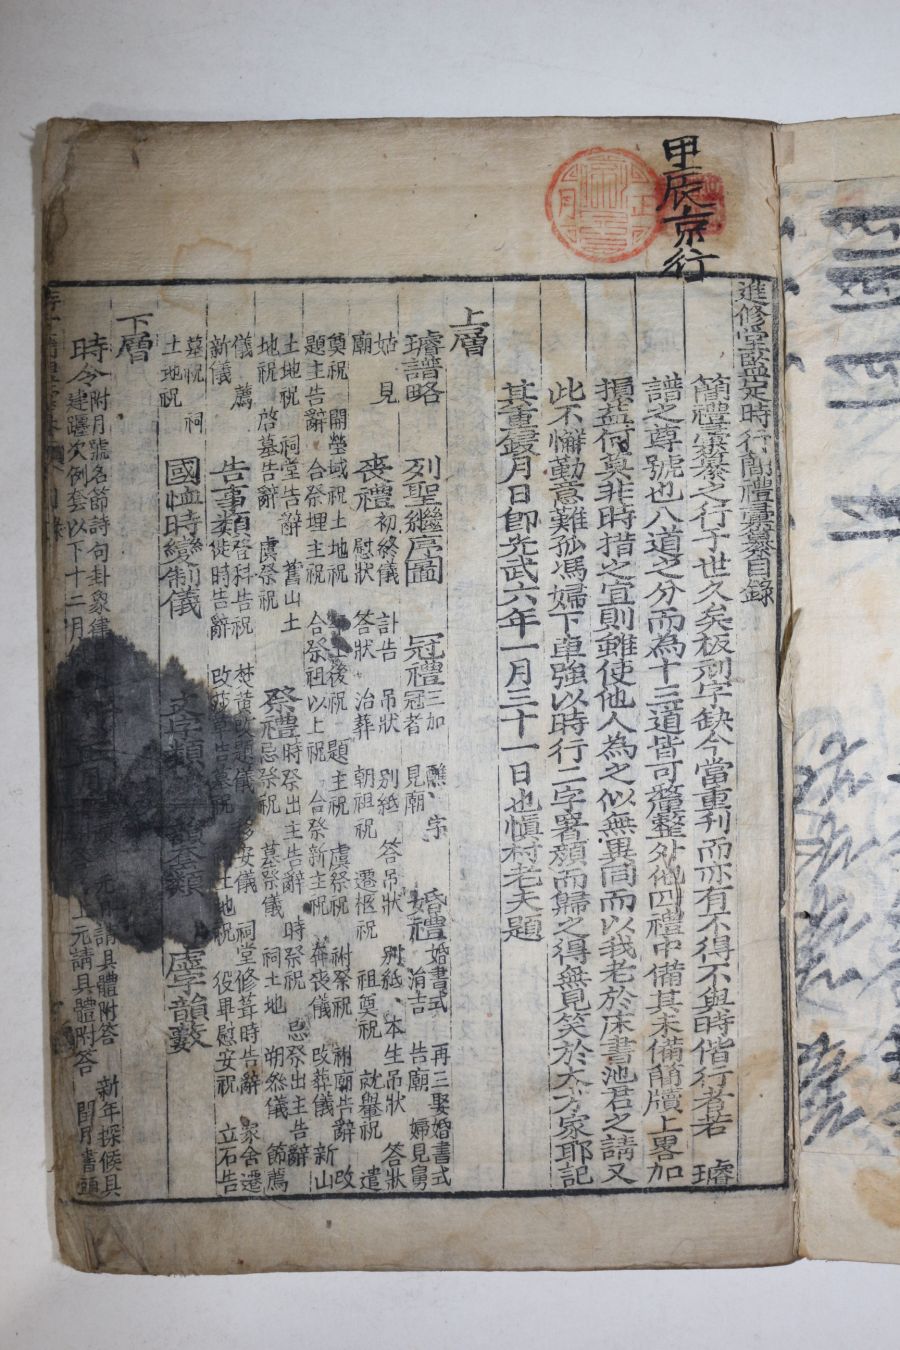 甲辰京行
進修堂監定時行簡禮彙纂目錄
簡禮彙纂之行于世久矣板刓字缺今當重刊而亦有不得不與時偕行者若　璿
譜之尊號也八道之分而為十三道皆可釐整外他四禮中備其未備簡牘上畧加
損益何與非時措之宜則雖使他人為之似無異同而以我老於床書池君之請又
此不懈勤意難孤馮婦下車強以時行二字署額而歸之得無見笑於大方家耶記
其重鋟月日卽光武六年一月三十一日也愼村老夫題
上層
璿譜略　列聖繼序圖　冠禮 三加　醮　字　冠者　見廟　婚禮 婚書式　再三娶婚書式　涓吉　告廟　婦見舅
姑　見廟　喪禮 初終儀　訃告　吊狀　別紙　答吊狀　別紙　本生吊狀　答狀　慰狀　答狀　治葬　朝祖祝　遷柩祝　祖奠祝　就轝祝　遣
奠祝　開塋域祝土地祝　後祝　題主祝　虞祭祝　祔祭祝　祔廟告辭　改
題主告辭　合祭埋主祝　合祭祖以上祝　合祭新主祝　喪儀　改葬儀　新山
土地祝　祠堂告辭　舊山土地祝　啓墓告辭　虞祭祝　祭禮 時祭出主告辭　時祭祝　忌祭出主告辭　忌祭祝　墓祭儀　祠土地　朔叅儀　節薦
儀　薦新儀　告事類 登科告祝　焚黃改題儀　安儀　祠堂修葺時告辭　家舍遷徙時告辭　土地祝　役畢慰安祝　立石告
墓祝　祠土地祝　國恤時變制儀　文字類　套類　虛字韻藪
下層
時令 附月號各節詩句卦象律　元　請具體附答　新年探候具
建躔次例套以下十二月　上元請具體附答　閏月書頭